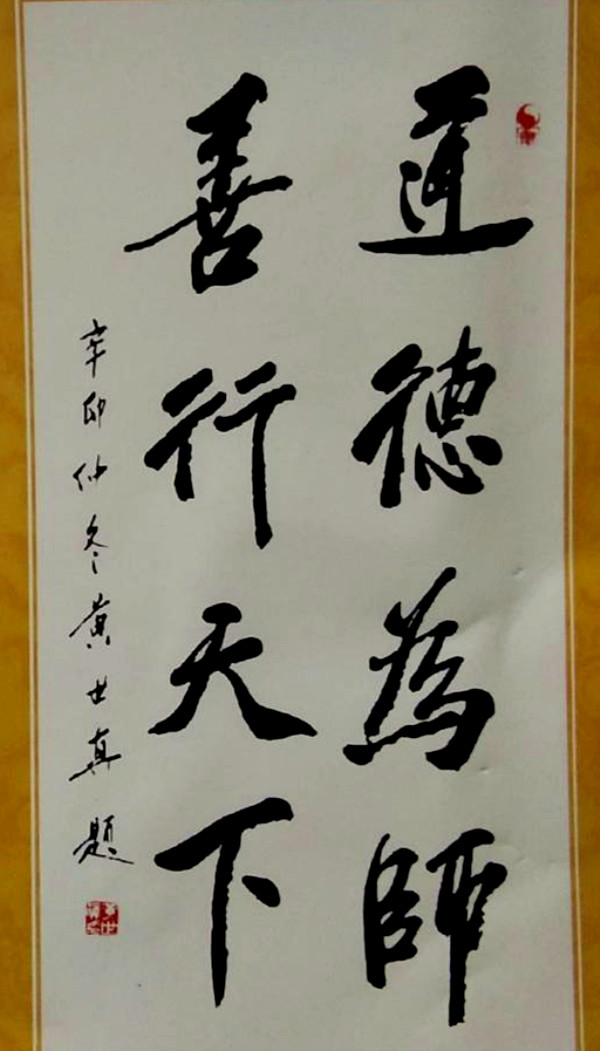 道德為師
善行天下
辛卯仲冬黄世真题